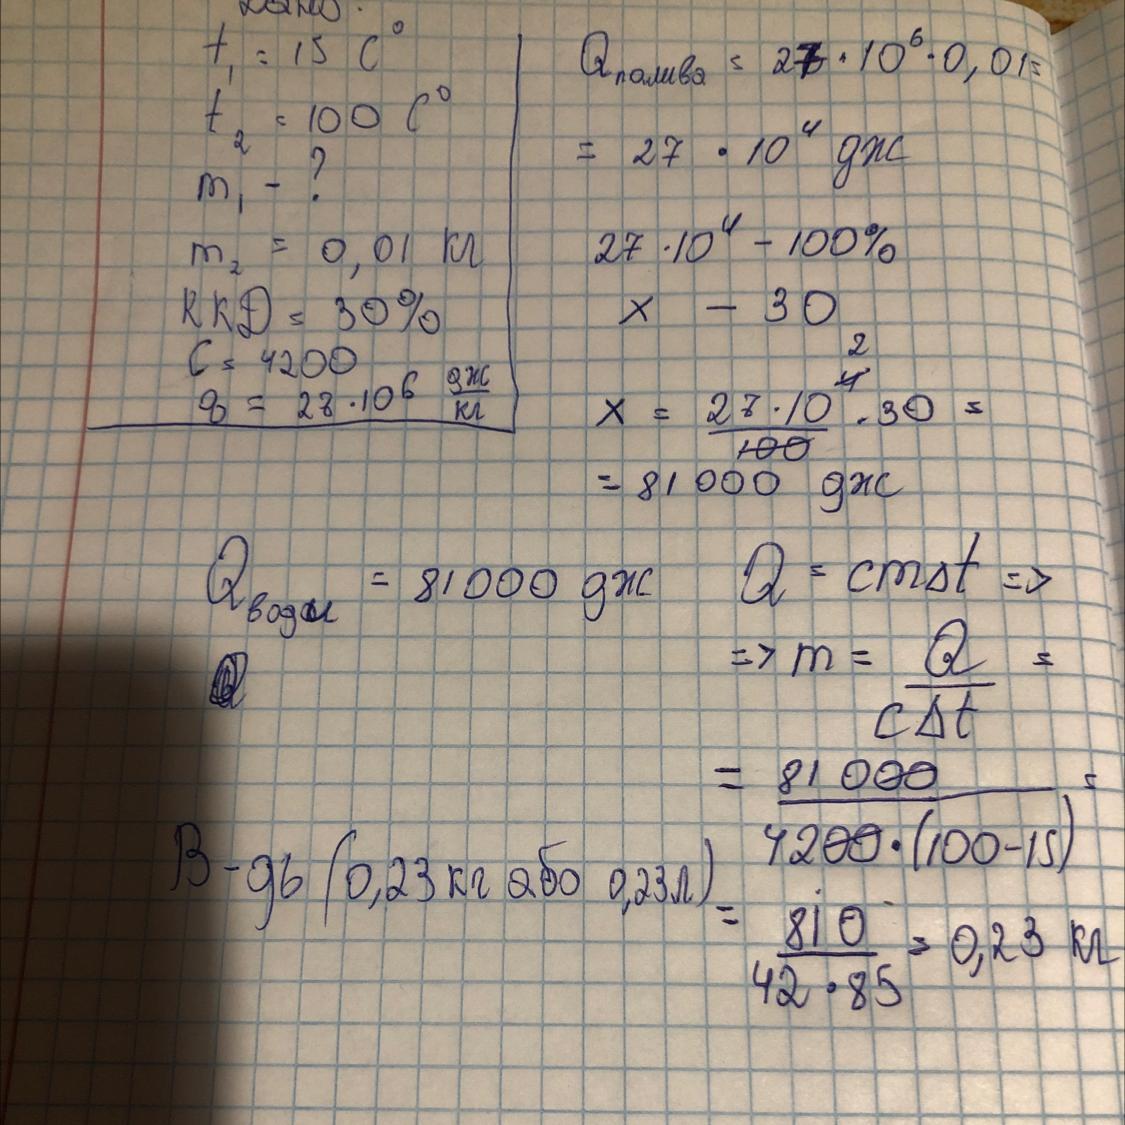 Дано:
t₁ = 15 C°
t₂ = 100 C°
m₁ - ?
m₂ = 0,01 кг
ККД = 30%
C = 4200
q = 27·10⁶ дж/кг
Qпалива = 27·10⁶·0,01=
= 27·10⁴ дж
27·10⁴ - 100%
x - 30
x = 27·10⁴/100 ·30 =
2
= 81 000 дж
Qводи = 81000 дж
Q = cmΔt =>
=> m = Q/cΔt =
= 81 000/4200·(100-15) =
= 810/42·85 = 0,23 кг
В-дь (0,23 кг або 0,23л)